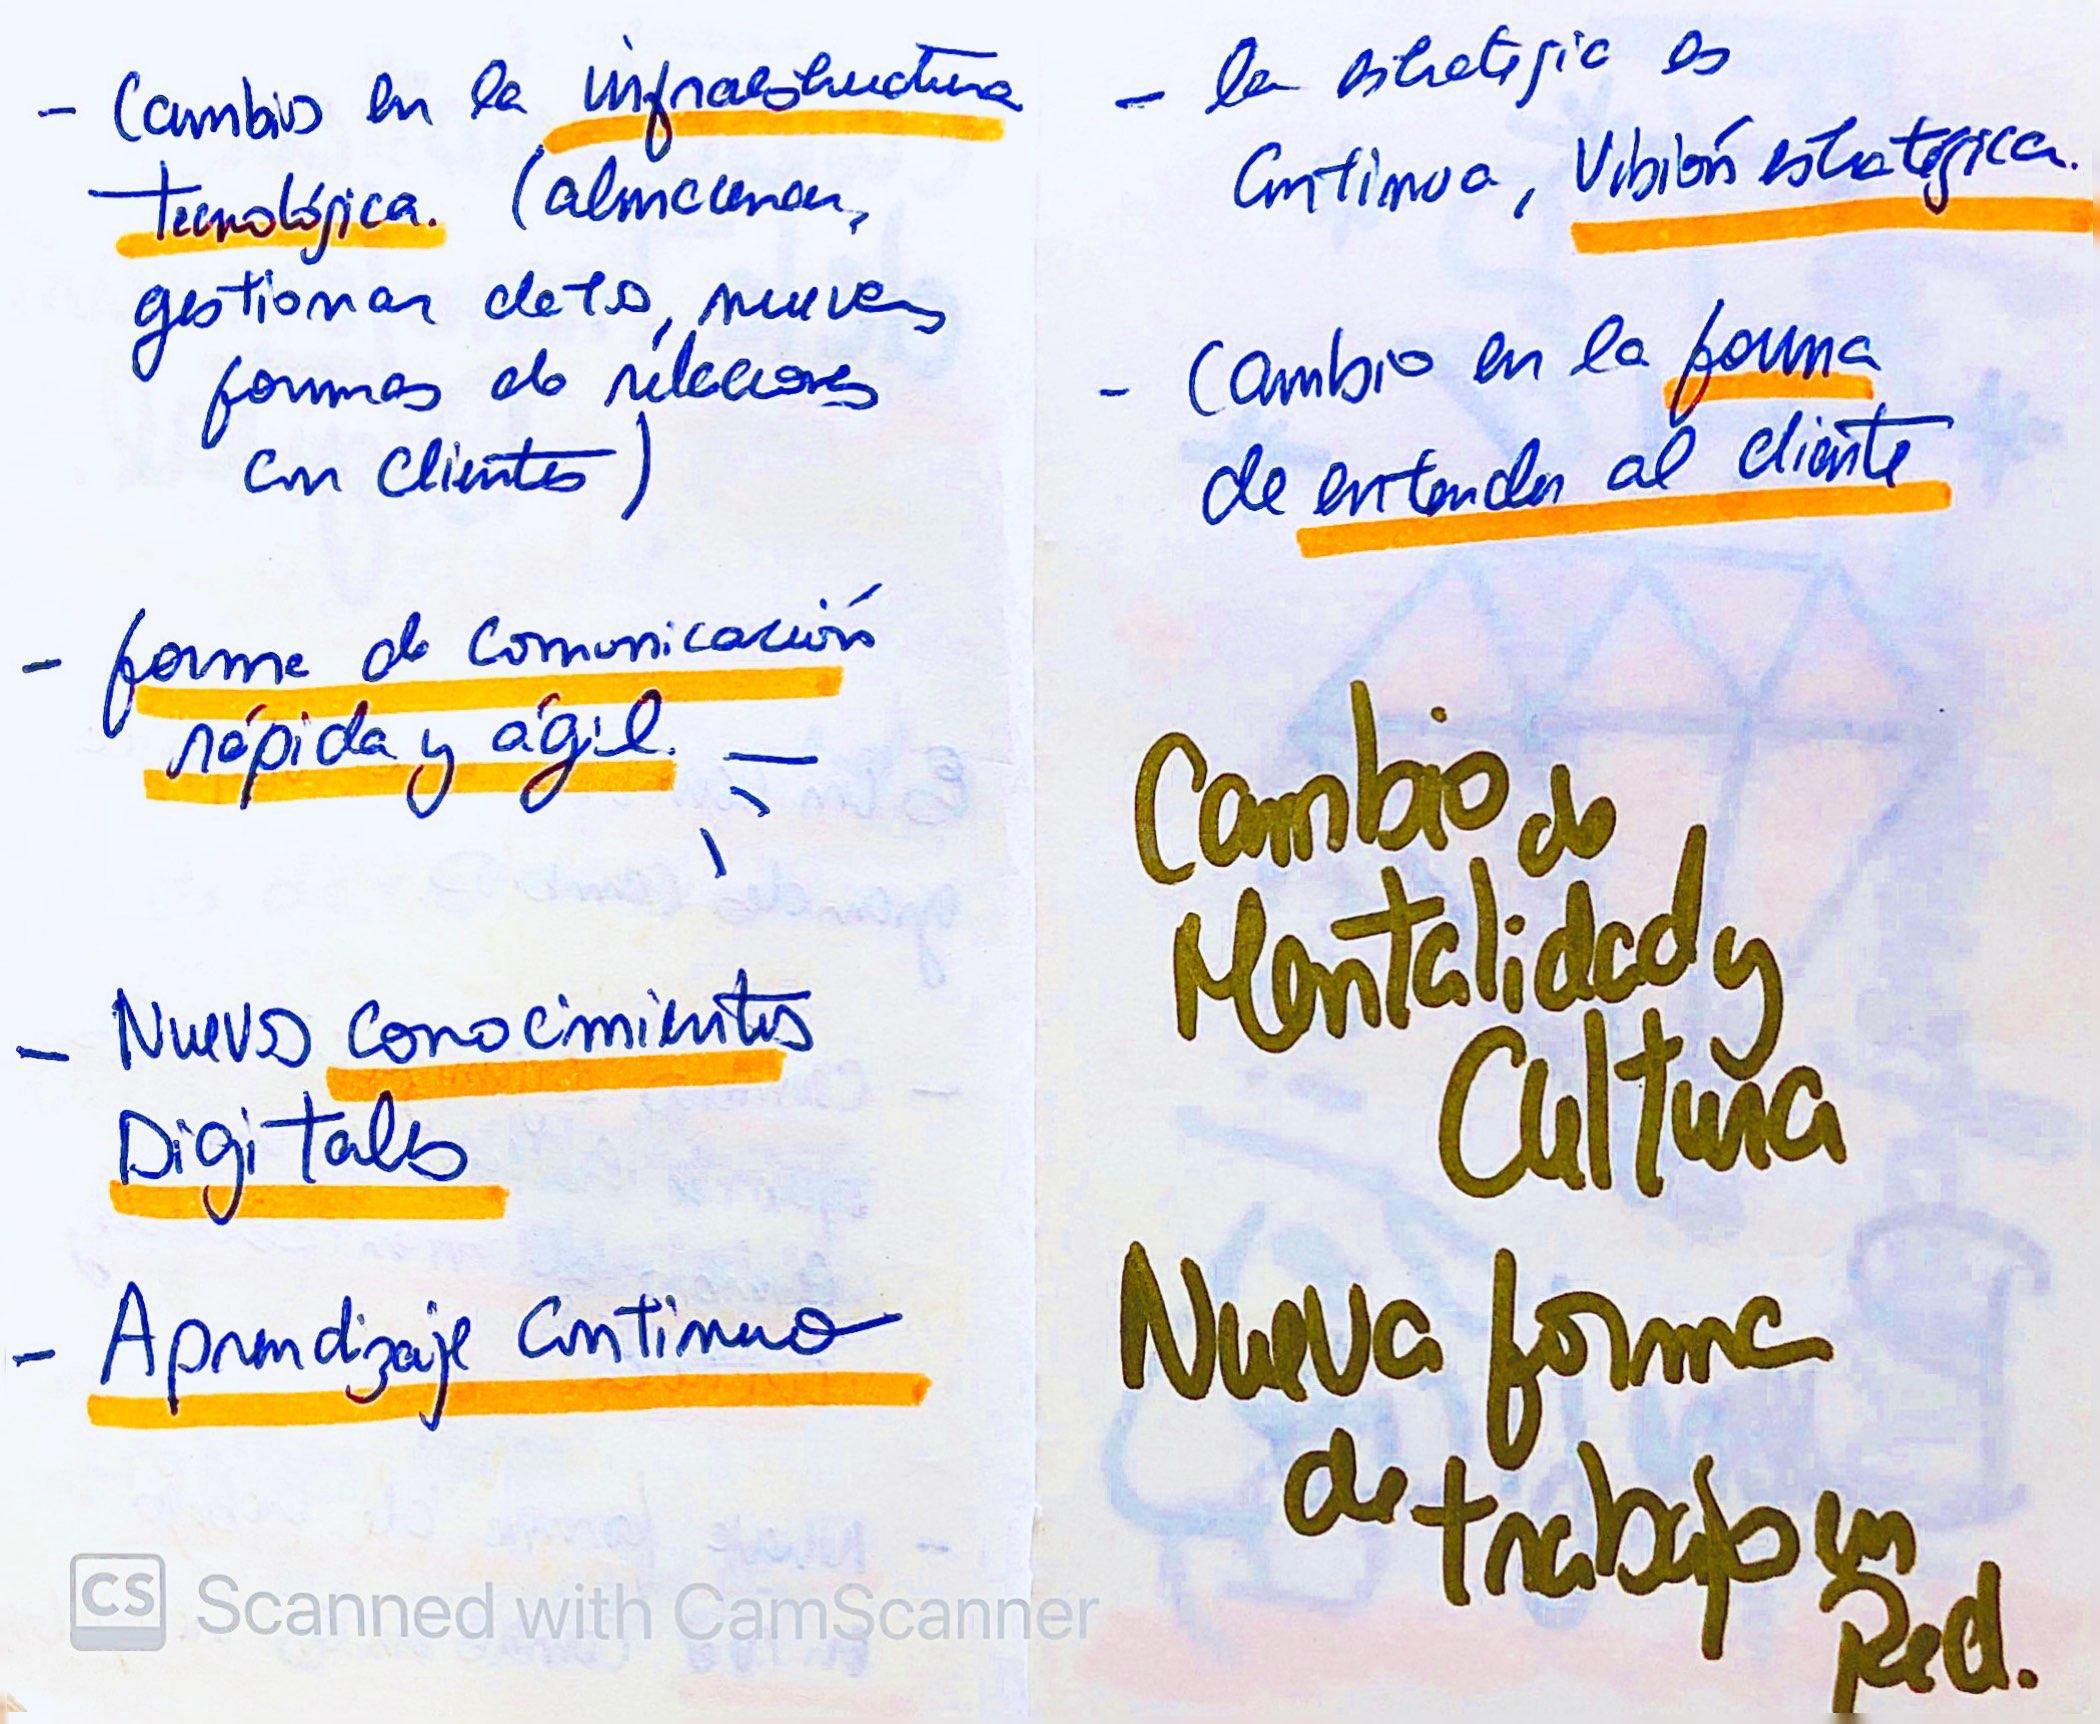 - Cambios en la infraestructura
tecnológica. (almacenar,
gestionar datos, nuevas
formas de relaciones
con clientes)
- forma de comunicación
rápida y ágil.
- Nuevos conocimientos
Digitales
- Aprendizaje Continuo
- la estrategia es
Continua, Visión estratégica.
- Cambio en la forma
de entender al cliente
Cambio de
Mentalidad y
Cultura
Nueva forma
de trabajo en
Red.
CS Scanned with CamScanner